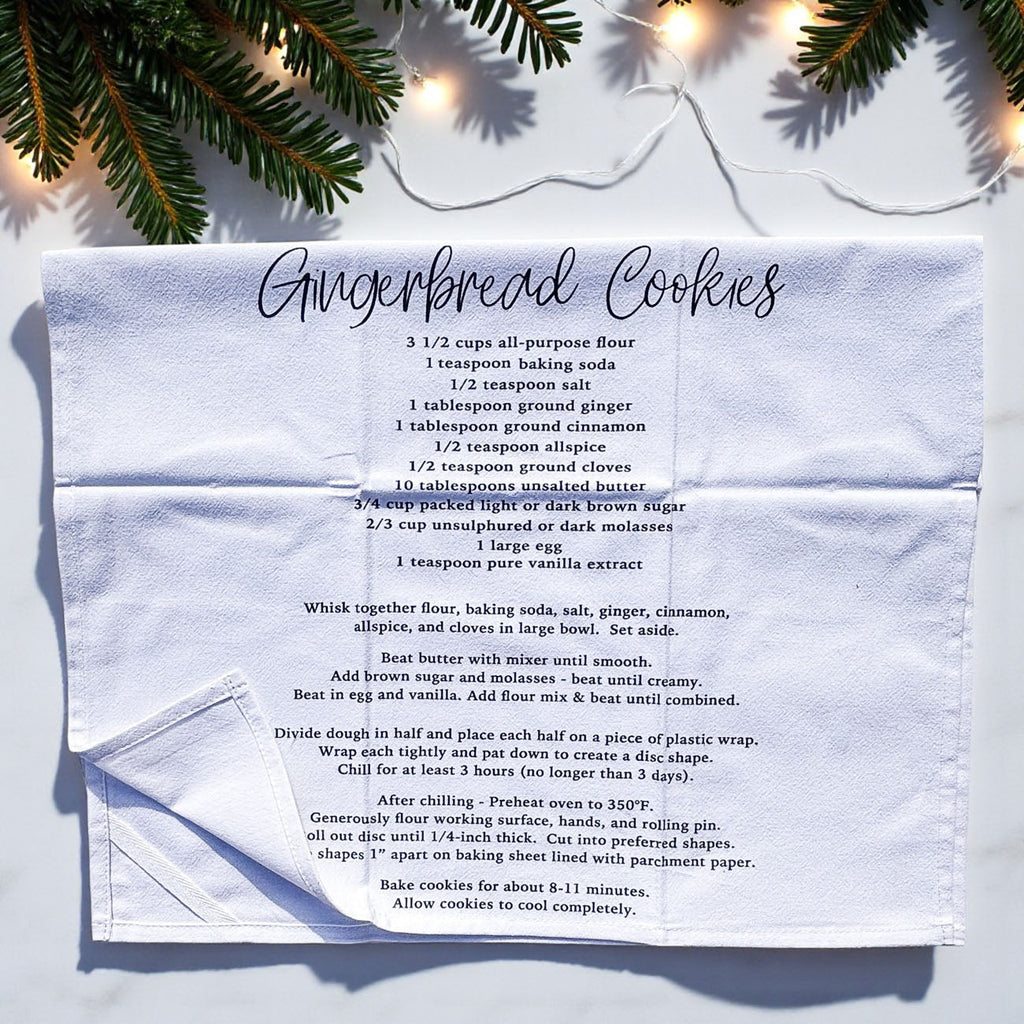 Gingerbread Cookies
3 1/2 cups all-purpose flour
1 teaspoon baking soda
1/2 teaspoon salt
1 tablespoon ground ginger
1 tablespoon ground cinnamon
1/2 teaspoon allspice
1/2 teaspoon ground cloves
10 tablespoons unsalted butter
3/4 cup packed light or dark brown sugar
2/3 cup unsulphured or dark molasses
1 large egg
1 teaspoon pure vanilla extract
Whisk together flour, baking soda, salt, ginger, cinnamon,
allspice, and cloves in large bowl.  Set aside.
Beat butter with mixer until smooth.
Add brown sugar and molasses - beat until creamy.
Beat in egg and vanilla. Add flour mix & beat until combined.
Divide dough in half and place each half on a piece of plastic wrap.
Wrap each tightly and pat down to create a disc shape.
Chill for at least 3 hours (no longer than 3 days).
After chilling - Preheat oven to 350°F.
Generously flour working surface, hands, and rolling pin.
oll out disc until 1/4-inch thick.  Cut into preferred shapes.
shapes 1” apart on baking sheet lined with parchment paper.
Bake cookies for about 8-11 minutes.
Allow cookies to cool completely.